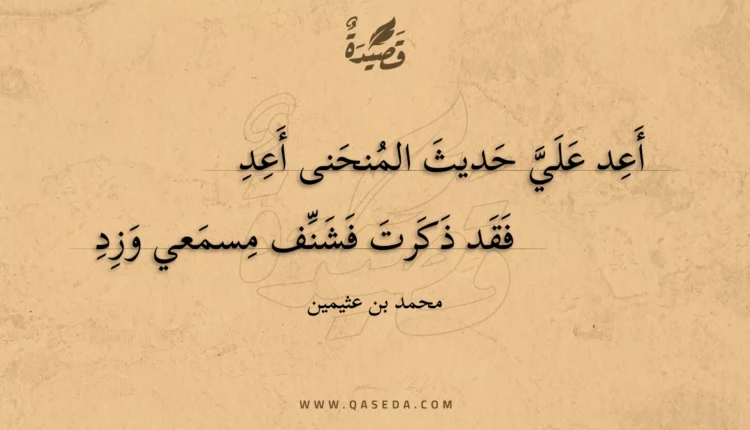 قَصِيْدَةٌ
أَعِد عَلَيَّ حَديثَ المُنحَنى أَعِدِ
فَقَد ذَكَرتَ فَشَنِّف مِسمَعي وَزِدِ
محمد بن عثيمين
WWW.QASEDA.COM